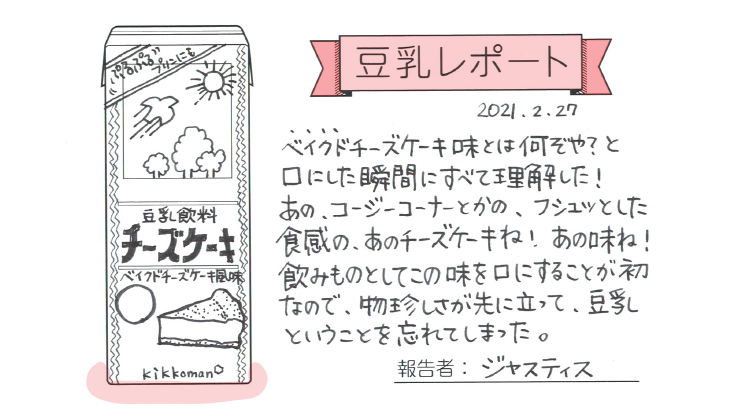 ぷるぷる
プリンにも
豆乳飲料
チーズケーキ
ベイクドチーズケーキ風味
kikkoman
豆乳レポート
2021.2.27
ベイクドチーズケーキ味とは何ぞや?と
口にした瞬間にすべて理解した!
あの、コージーコーナーとかの、フシュッとした
食感の、あのチーズケーキね! あの味ね!
飲みものとしてこの味を口にすることが初
なので、物珍しさが先に立って、豆乳
ということを忘れてしまった。
報告者: ジャスティス